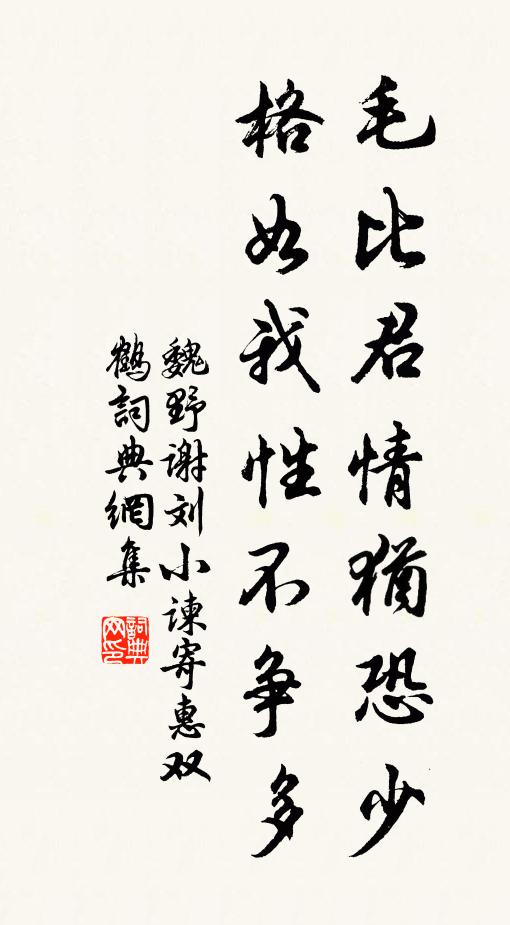 毛比君情犹恐少
格如我性不争多
魏野谢刘小谏寄惠双
鹤詞典網集
詞典网印